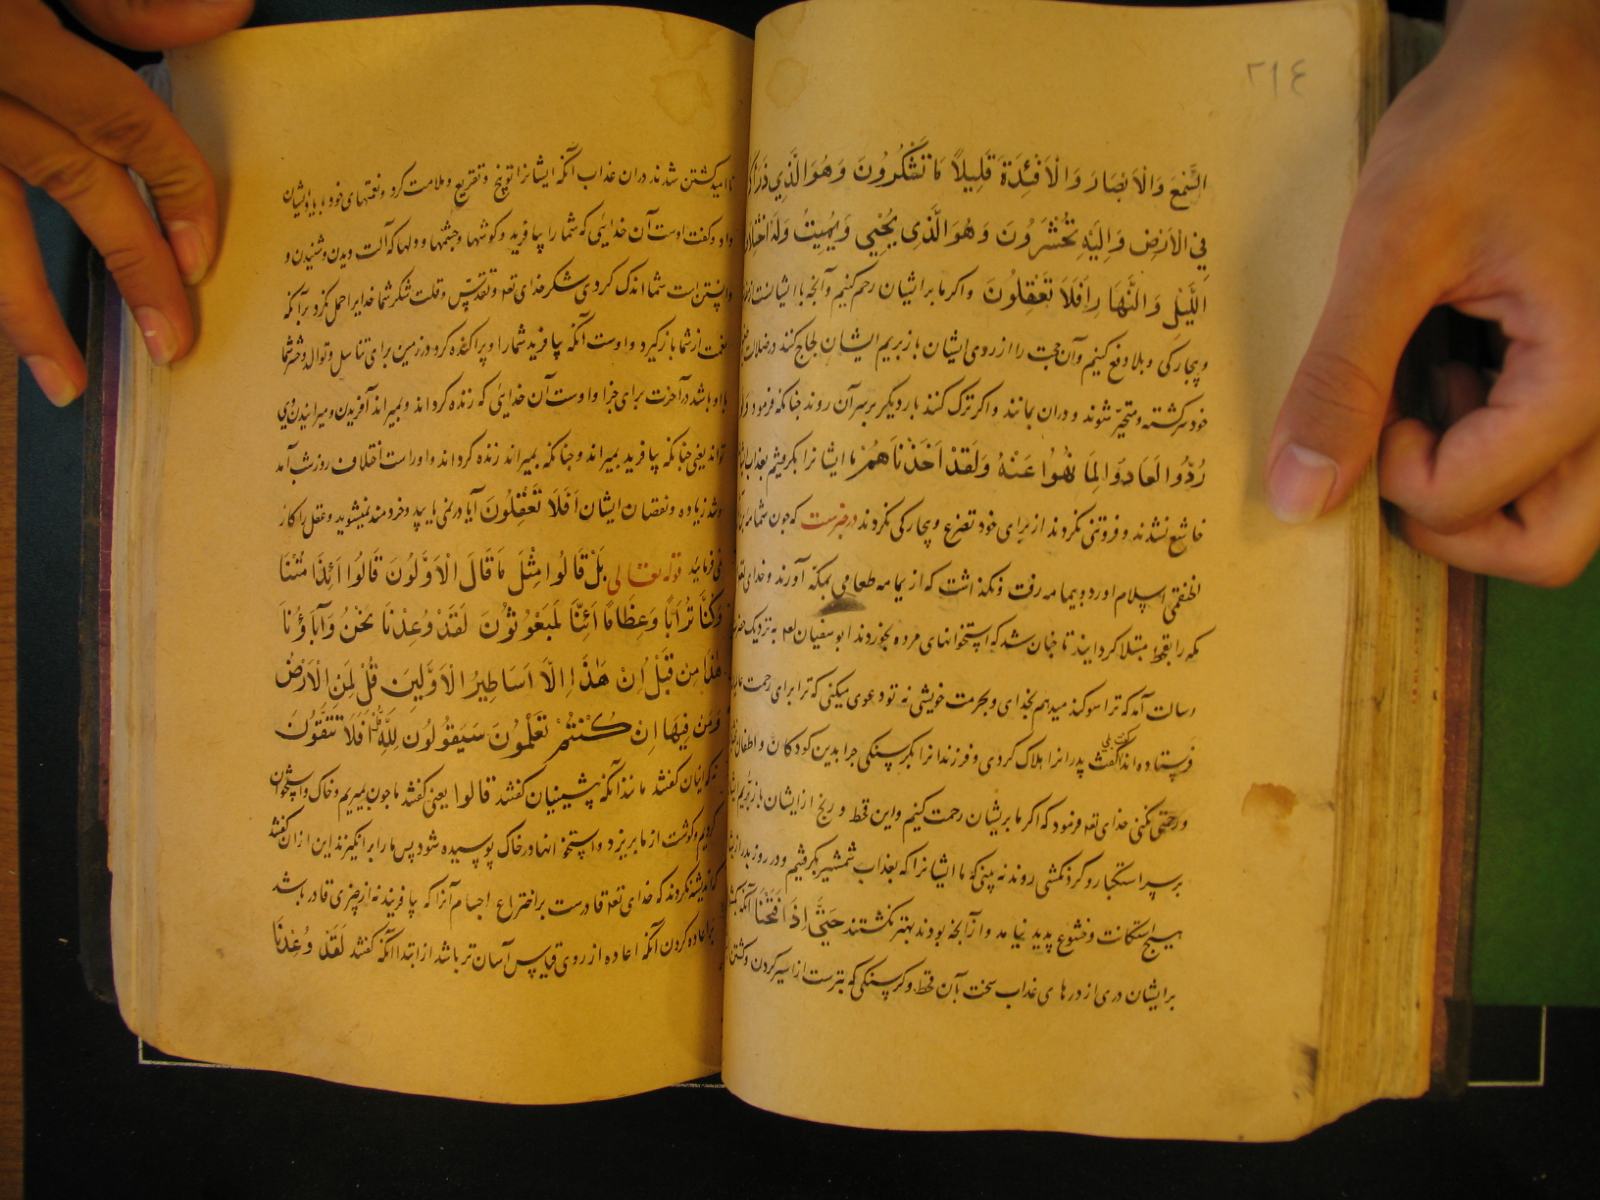 ٢١٤
السَّمْعَ وَالْاَبْصَارَ وَالْاَفْئِدَةَ قَلِيلًا مَا تَشْكُرُونَ وَهُوَ الَّذِي ذَرَاَكُمْ
فِي الْاَرْضِ وَاِلَيْهِ تُحْشَرُونَ وَهُوَ الَّذِي يُحْيِي وَيُمِيتُ وَلَهُ اخْتِلَافُ
اللَّيْلِ وَالنَّهَارِ اَفَلَا تَعْقِلُونَ واکر ما بر ایشان رحم کنیم وآنچه با ایشانست از
وبیچارکی وبلا دفع کنیم وآن حجت را از روی ایشان باز بریم ایشان لجاج کنند در ضلالت
خود سرکشته ومتحیر شوند ودران بمانند واکر ترک کنند بار دیکر بر سر آن روند چنانکه فرمود
رُدُّوا لَعَادُوا لِمَا نُهُوا عَنْهُ وَلَقَدْ اَخَذْنَاهُمْ ما ایشانرا بکرفتیم بعذاب
خاشع نشدند وفروتنی نکردند از برای خود تضرع وبیچارکی نکردند در خبرست که چون
اسلام اورد وبیمامه رفت ونکذاشت که از یمامه طعامی بمکه آورند وخدای تعا
مکه را بقحط مبتلا کردانید تا چنان شد که استخوانهای مرده بخوردند ابو سفیان بنزدیک
رسالت آمد که ترا سوکند میدهم بخدای وبحرمت خویشی نه تو دعوی میکنی که ترا برای رحمت
فرستاده اند گفت بلی گفت پدرانرا هلاک کردی وفرزندانرا بکرسنکی چرا بدین کودکان واطفال
ورحمتی نکنی خدای تعا فرمود که اکر ما بریشان رحمت کنیم واین قحط ورنج از ایشان باز بریم
بر سر استکبار وکردنکشی روند نه بینی که ما ایشانرا که بعذاب شمشیر بکرفتیم ودر روز بدر
هیچ استکانت وخشوع پدید نیامد واز آنچه بودند بهتر نکشتند حَتَّى اِذَا فَتَحْنَا
برایشان دری از درهای عذاب سخت بآن قحط وکرسنکی که بترست از اسیر کردن وکشتن
ناامید کشتن شدند دران عذاب آنکه ایشانرا توبیخ وتقریع وملامت کرد ونعمتهای خود با یاد ایشان
داد وکفت اوست آن خدایی که شما را بیافرید وکوشها وچشمها ودلها که آلت دیدن وشنیدن و
دانستن است شما اندک کردی شکر خدای تعا وتقدس وقلت شکر شما خدایرا حمل نکرد برآنکه
نعمت از شما باز کیرد واوست آنکه بیافرید شما را وپراکنده کرد در زمین برای تناسل وتوالد وحشر شما
با او باشد در آخرت برای جزا واوست آن خدایی که زنده کرداند وبمیراند آفریدن ومیرانیدن وی
تواند یعنی چنانکه بیافرید بمیراند وچنانکه بمیراند زنده کرداند واوراست اختلاف روز شب آمد
وشد زیاده ونقصان ایشان اَفَلَا تَعْقِلُونَ آیا در نمی یابید وخردمند نمیشوید وعقل را کار
نمی فرمایید قوله تعالی بَلْ قَالُوا مِثْلَ مَا قَالَ الْاَوَّلُونَ قَالُوا اَئِذَا مُتْنَا
وَكُنَّا تُرَابًا وَعِظَامًا اَئِنَّا لَمَبْعُوثُونَ لَقَدْ وُعِدْنَا نَحْنُ وَآبَاؤُنَا
هٰذَا مِنْ قَبْلُ اِنْ هٰذَا اِلَّا اَسَاطِيرُ الْاَوَّلِينَ قُلْ لِمَنِ الْاَرْضُ
وَمَنْ فِيهَا اِنْ كُنْتُمْ تَعْلَمُونَ سَيَقُولُونَ لِلّٰهِ قُلْ اَفَلَا تَتَّقُونَ
کفتند مانند آنکه پیشینیان کفتند قالوا یعنی کفتند ما چون بمیریم وخاک واستخوان
کردیم وکوشت از ما بریزد واستخوانها در خاک پوسیده شود پس ما را برانکیزند این ازان کفتند
که اندیشه نکردند که خدای تعا قادرست بر اختراع اجسام آنرا که بیافریند نه از چیزی قادر باشد
بر اعاده کردن آنکه اعاده از روی قیاس آسان تر باشد از ابتدا آنکه کفتند لَقَدْ وُعِدْنَا